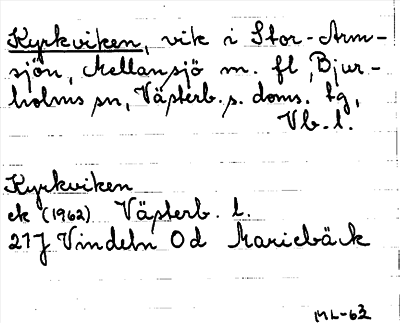 Kyrkviken, vik i Stor-Arm-
sjön, Mellansjö m. fl, Bjur-
holms sn, Västerb. s. doms. tg,
Vb. l.
Kyrkviken
ek (1962) Västerb. l.
21J Vindeln 0d Mariebäck
ML-63